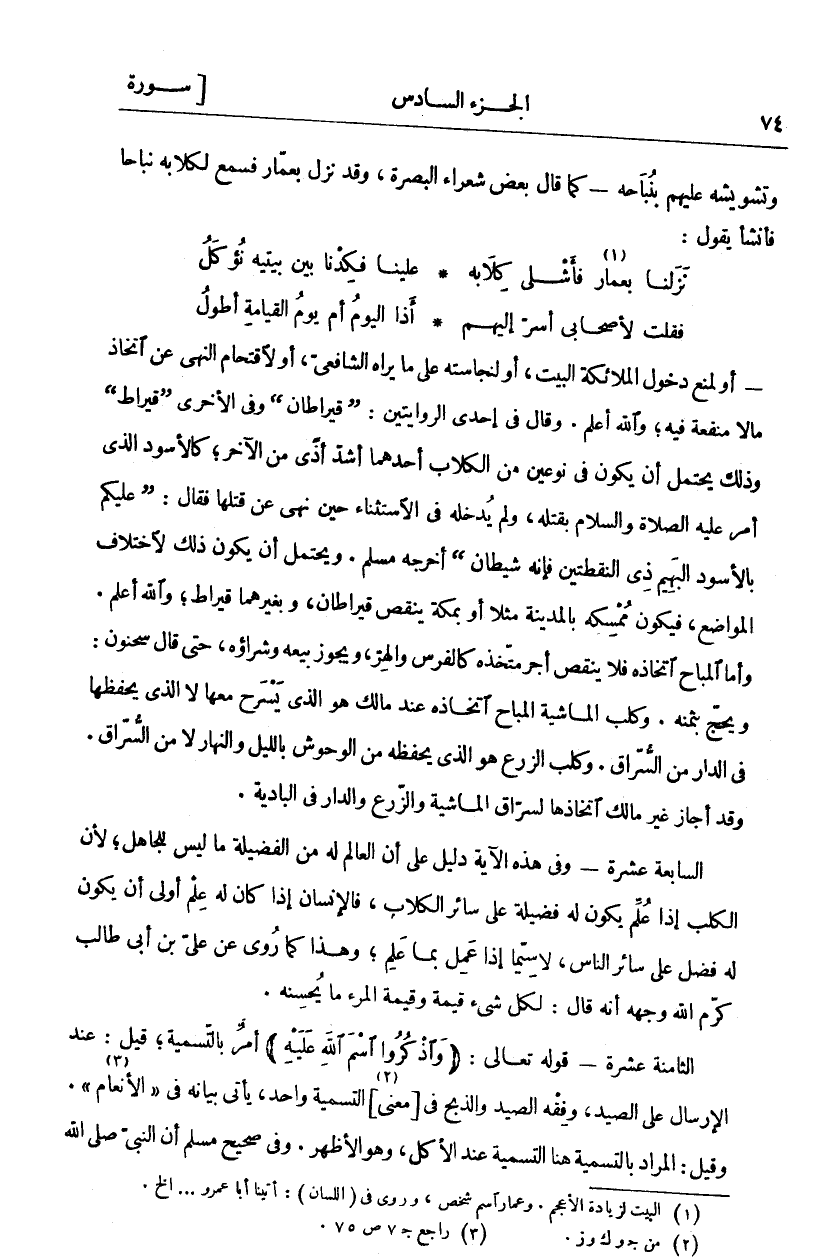 ٧٤ الجزء السادس [ سورة
وتشويشه عليهم بنُبَاحه — كما قال بعض شعراء البصرة، وقد نزل بعمّار فسمع لكلابه نباحا
فأنشأ يقول :
نَزَلنا بعمار (١) فأَشْلى كِلَابه * علينا فكِدْنا بين بيتيه نُؤكَلُ
فقلت لأصحابى أسرّ إليهم * أَذا اليومُ أم يومُ القيامةِ أطولُ
— أو لمنع دخول الملائكة البيت، أو لنجاسته على ما يراه الشافعىّ، أو لٱقتحام النهى عن ٱتخاذ
مالا منفعة فيه؛ والله أعلم . وقال فى إحدى الروايتين : ”قيراطان“ وفى الأخرى ”قيراط“
وذلك يحتمل أن يكون فى نوعين من الكلاب أحدهما أشدّ أذًى من الآخر؛ كالأسود الذى
أمر عليه الصلاة والسلام بقتله، ولم يُدخله فى الٱستثناء حين نهى عن قتلها فقال : ”عليكم
بالأسود البَهِيم ذِى النقطتين فإنه شيطان“ أخرجه مسلم . ويحتمل أن يكون ذلك لٱختلاف
المواضع، فيكون مُمْسِكه بالمدينة مثلا أو بمكة ينقص قيراطان، وبغيرهما قيراط؛ والله أعلم .
وأما المباح ٱتخاذه فلا ينقص أجر متّخذه كالفرس والهِرّ، ويجوز بيعه وشراؤه، حتى قال سحنون :
ويحجّ بثمنه . وكلب الماشية المباح ٱتخاذه عند مالك هو الذى يَسْرَح معها لا الذى يحفظها
فى الدار من السُّرّاق . وكلب الزرع هو الذى يحفظه من الوحوش بالليل والنهار لا من السُّرّاق .
وقد أجاز غير مالك ٱتخاذها لسرّاق الماشية والزّرع والدار فى البادية .
السابعة عشرة — وفى هذه الآية دليل على أن العالم له من الفضيلة ما ليس للجاهل؛ لأن
الكلب إذا عُلِّم يكون له فضيلة على سائر الكلاب، فالإنسان إذا كان له عِلْم أولى أن يكون
له فضل على سائر الناس، لاسِيّما إذا عَمِل بما عَلِم؛ وهذا كما رُوى عن علىّ بن أبى طالب
كرّم الله وجهه أنه قال : لكل شىء قيمة وقيمة المرء ما يُحسِنه .
الثامنة عشرة — قوله تعالى : ﴿وَٱذْكُرُوا ٱسْمَ ٱللَّهِ عَلَيْهِ﴾ أمرٌ بالتّسمية؛ قيل : عند
الإرسال على الصيد، وفِقْه الصيد والذبح فى [معنى] (٢) التسمية واحد، يأتى بيانه فى «الأنعام» (٣) .
وقيل : المراد بالتسمية هنا التسمية عند الأكل، وهو الأظهر . وفى صحيح مسلم أن النبىّ صلى الله
(١) البيت لزيادة الأعجم . وعمار ٱسم شخص، وروى فى (اللسان) : أتينا أبا عمرو ... الخ .
(٢) من جـ و ك و ز . (٣) راجع جـ ٧ ص ٧٥ .